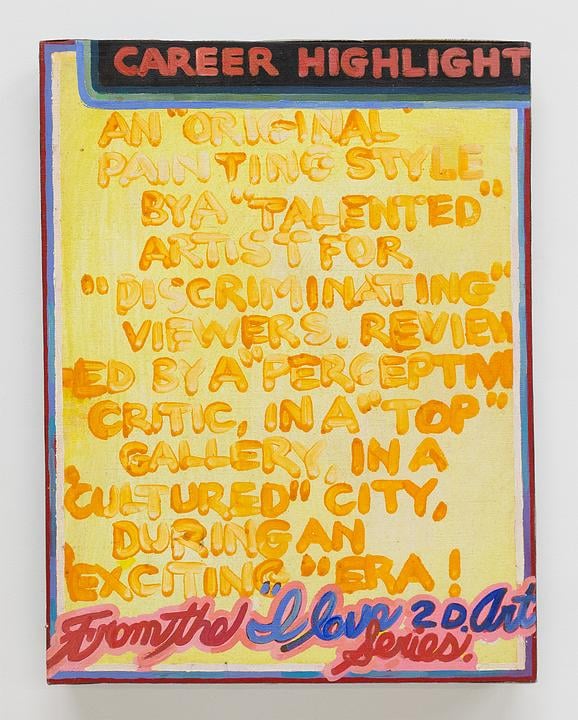 CAREER HIGHLIGHT
AN "ORIGINAL"
PAINTING STYLE
BY A "TALENTED"
ARTIST FOR
"DISCRIMINATING"
VIEWERS. REVIEW
ED BY A "PERCEPTIV
CRITIC, IN A "TOP"
GALLERY, IN A
"CULTURED" CITY,
DURING AN
"EXCITING" ERA!
From the "I love 2D. Art
Series.